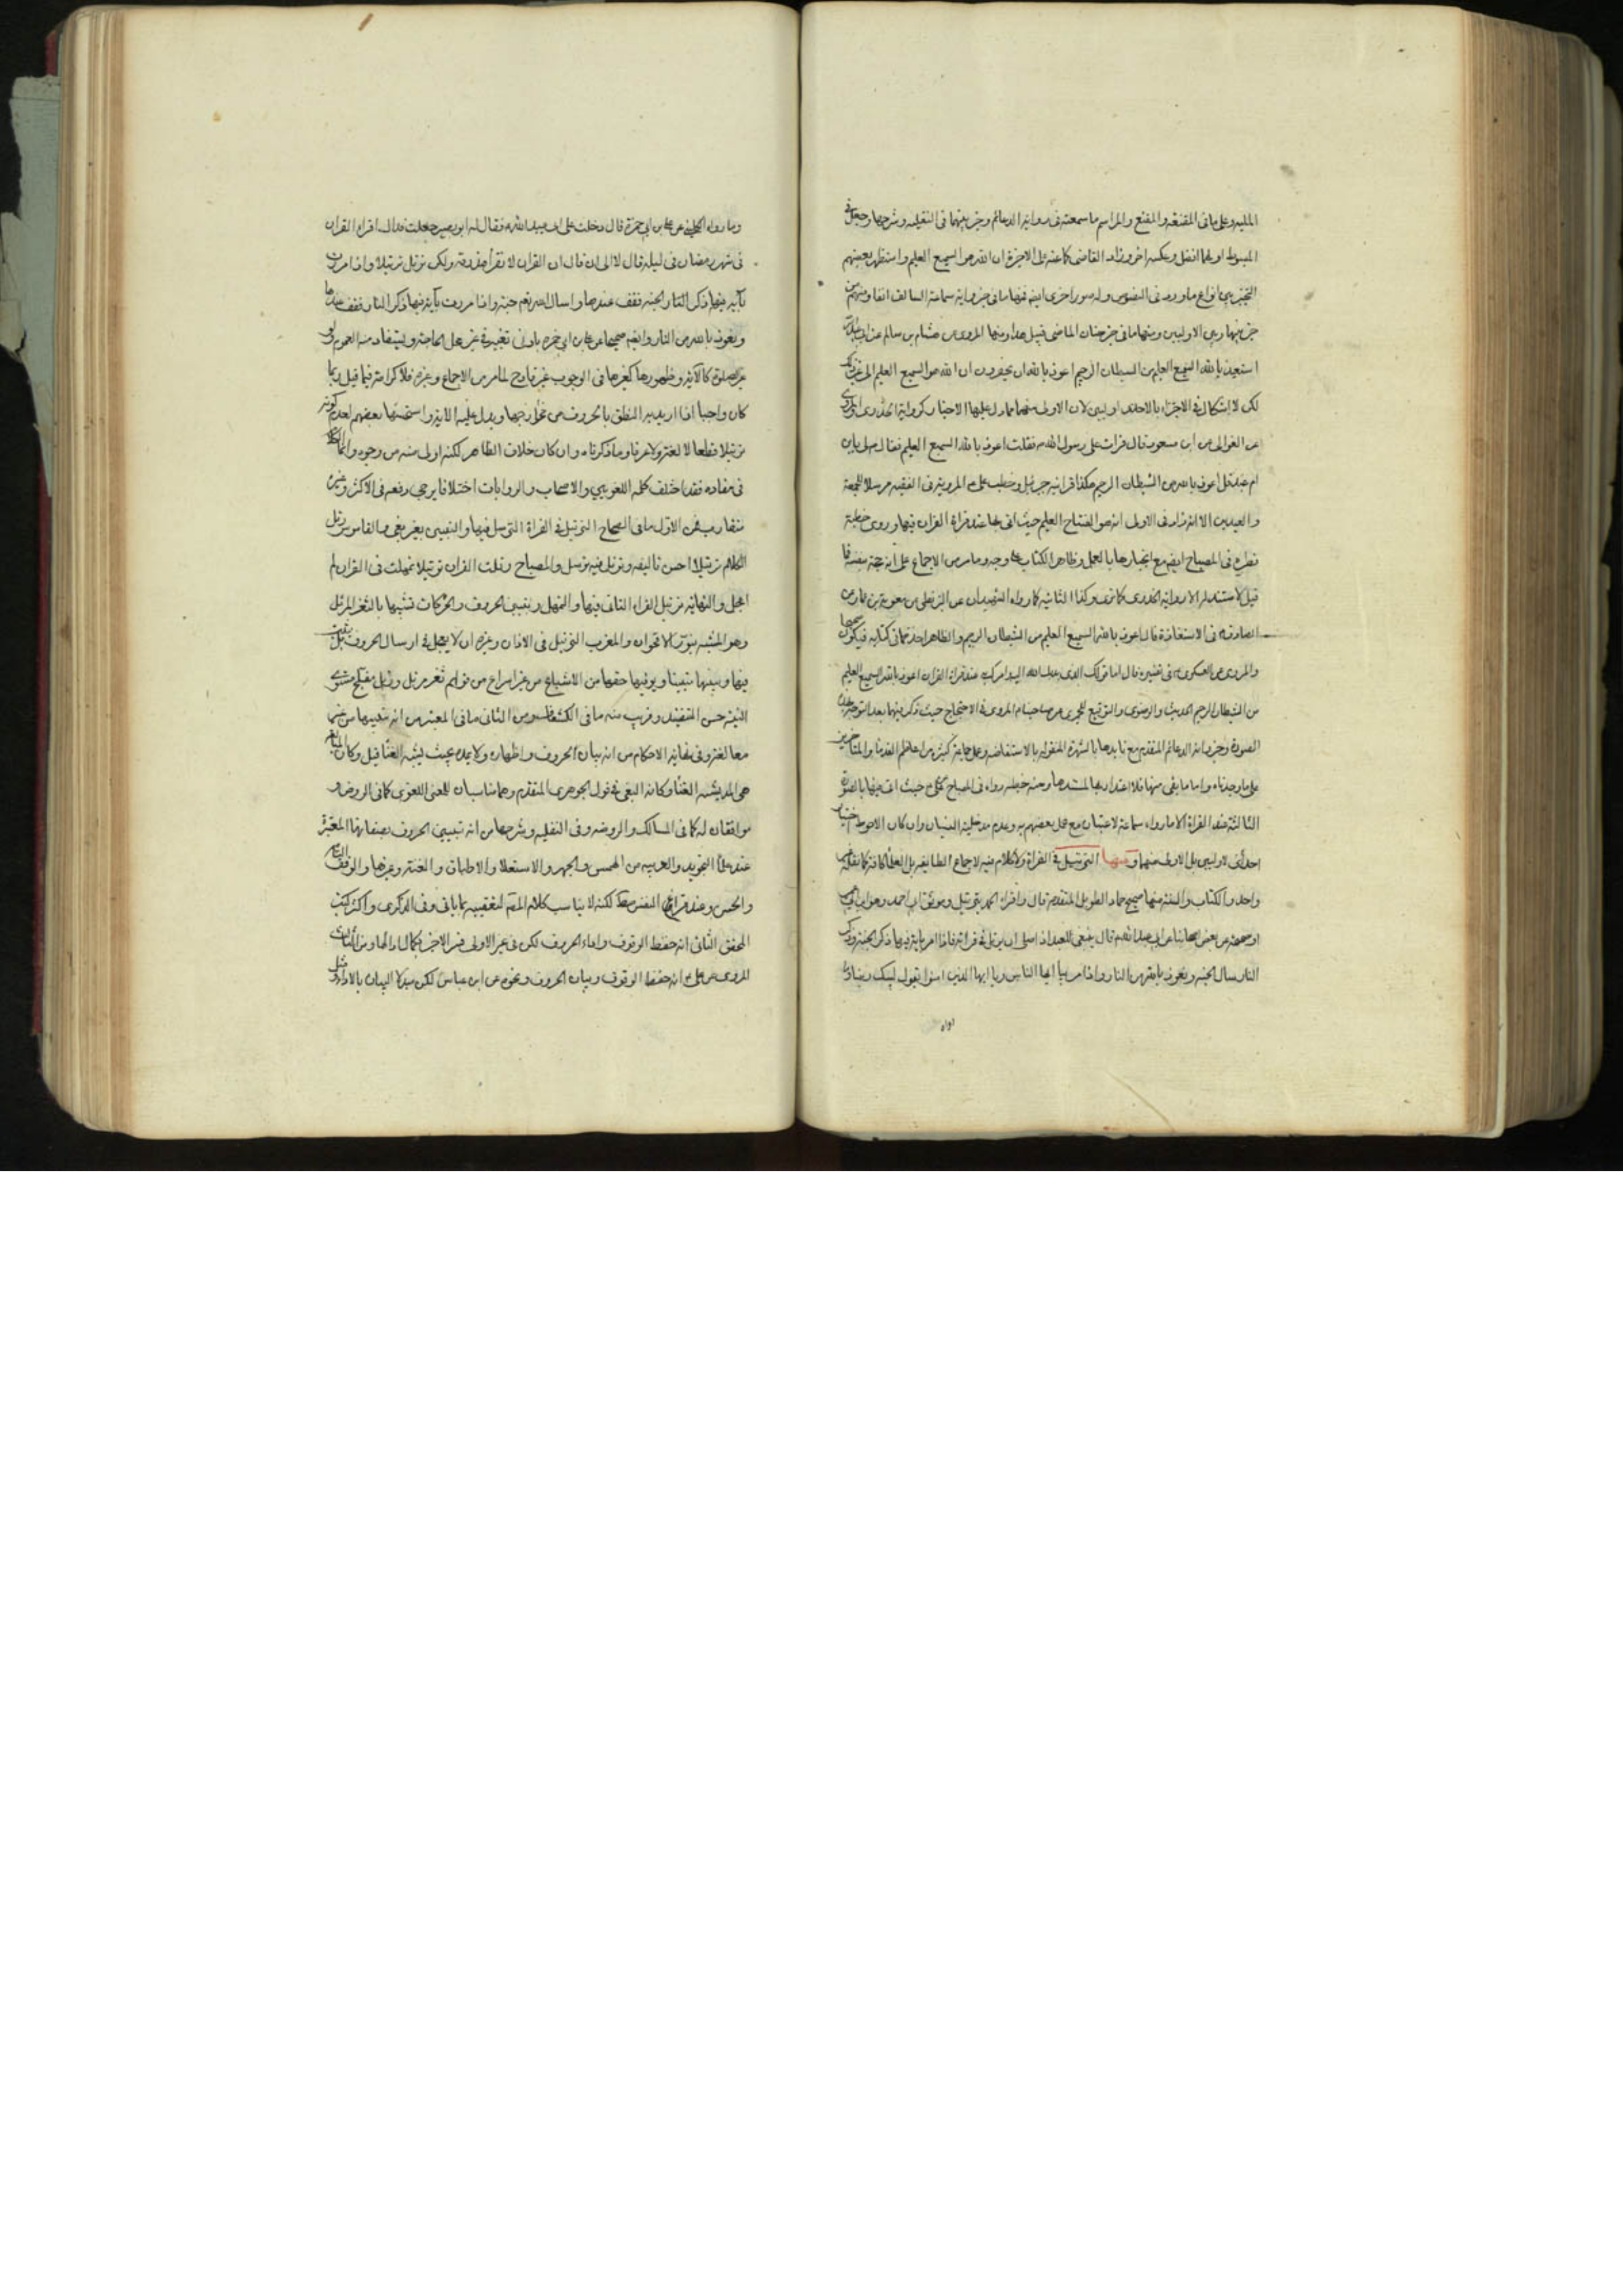 المليه وعلى ما فى المقنعة والمقنع والمراسم ما سمعته فى رواية الدعائم وخير بينهما فى النفليه وشرحها وجعل فى
المبسوط اولهما افضل وعكسه اخر وزاد القاضى كما عنه على الاخيرة ان الله هو السميع العليم واستظهر بعضهم
التخيير بين انواع ما ورد فى النصوص وله صور اخرى ايضا فمنها ما فى رواية سماعة السالف انفا ومنهم من
خير بينها وبين الاوليين ومنها ما فى خبر حنان الماضى قبيل هذا ومنها المروى عن هشام بن سالم عن ابى عبد الله
استعيذ بالله السميع العليم من الشيطان الرجيم اعوذ بالله ان يحضرون ان الله هو السميع العليم الى غير ذلك
لكن لا اشكال فى الاجتزاء باحدى اوليين لان الاولى منهما مما دل عليها الاخبار كرواية الخدرى والمروى
عن الغوالى عن ابن مسعود قال قرات على رسول الله ص فقلت اعوذ بالله السميع العليم فقال لى يا بن
ام عبد قل اعوذ بالله من الشيطان الرجيم هكذا اقرانيه جبرئيل وخطب على ع المروية فى الفقيه مرسلا للجمعة
والعيدين الا انه زاد فى الاولى ان هو الفتاح العليم حيث اتى بها عند قراءة القران فيها وروى خطبة
نظيره فى المصباح ايضا مع انجبارها بالعمل وظاهر الكتاب على وجه وما مر من الاجماع على انه حجة مضافا
قيل لا مستند له الا رواية الخدرى كما ترى وكذا الثانية كما رواه الشهيدان عن البزنطى عن معوية بن عمار عن
الصادق ع فى الاستعاذة قال اعوذ بالله السميع العليم من الشيطان الرجيم والظاهر اخذه ما فى كتابه فيكون صحيحا
والمروى عن العسكرى ع فى تفسيره قال اما قولك الذى ندبك الله اليه وامرك به عند قراءة القران اعوذ بالله السميع العليم
من الشيطان الرجيم الحديث والرضوى والتوقيع للحميرى عن صاحبنا ع المروى فى الاحتجاج حيث ذكر فيهما بعد التوجه هذه
الصورة وخبر رواية الدعائم المتقدم مع تايدها بالشهرة المنقولة بالاستفاضة وعمل جماعة كثيرة من اعاظم القدماء والمتاخرين
على ما وجدناه واما ما بقى منها فلا اعتداد بها لمستندها ومنه خطبه رواه فى المصباح لعلى ع حيث اتى فيها بالصورة
الثالثة عند القراءة الا ما رواه سماعة لاعتبارٍ مع عمل بعضهم به وعدم مدخلية النسيان وان كان الاحوط اختيار
احدى الاوليين بل الاولى منهما و منها الترتيل فى القراءة ولا كلام فيه لاجماع الطايفة بل العلماء كافة كما نقله غير
واحد والكتاب والسنة منها صحيح حماد الطويل المتقدمة قال وقرا الحمد بترتيل وموثق احمد وهو
او صحيحه عن بعض اصحابنا عن ابى عبد الله ع قال ينبغى للعبد اذا صلى ان يرتل فى قرائته فاذا مر باية فيها ذكر الجنة وذكر
النار سال الجنة وتعوذ بالله من النار واذا مر بيا ايها الناس ويا ايها الذين امنوا يقول لبيك ربنا
وما رواه الكلينى عن على بن ابى حمزة قال دخلت على ابى عبد الله ع فقال له ابو بصير جعلت فداك اقراء القران
فى شهر رمضان فى ليلة قال لا الى ان قال ان القران لا تقرأ هذرمة ولكن ترتل ترتيلا واذا مررت
بآية فيها ذكر الجنة فقف عندها واسال الله تعم جنة واذا مررت بآية فيها ذكر النار فقف عندها
وتعوذ بالله من النار
غير الصلوة كالآية وظهورها كغيرها فى الوجوب غير قادح لما مر من الاجماع وغيره فلا كرامة فيما قيل ربما
كان واجبا اذا اريد به النطق بالحروف من مخارجها ويدل عليه الآية واستحسنها بعضهم لعدم كونه
ترتيلا قطعا لا لغة ولا عرفا وما ذكرناه وان كان خلاف الظاهر لكنه اولى منه من وجوه وانما الكلام
فى مفاده فقد اختلف كلمة اللغويين والاصحاب والروايات اختلافا يرجى رفعه فى الاكثر وغيره
متقارب فمن الاول ما فى الصحاح الترتيل فى القراءة الترسل فيها والتبيين بغير بغى والقاموس رتل
الكلام ترتيلا احسن تاليفه وترتل فيه ترسل والمصباح رتلت القران ترتيلا تمهلت فى القران ولم
اعجل والنهاية ترتيل القراءة التانى فيها والتمهل وتبيين الحروف والحركات تشبيها بالثغر المرتل
وهو المشبه بنور الاقحوان والمغرب الترتيل فى الاذان وغيره ان لا يعجل فى ارسال الحروف بل يتثبت
فيها ويبينها تبيينا ويوفيها حقها من الاشباع من غير اسراع من قولهم ثغر مرتل ورتل مفلج مستوى
النبتة حسن التنضيد وقريب منه ما فى الكشاف ومن الثانى ما فى المعتبر من انه تبيينها من غير
مبالغة وفى نهاية الاحكام من انه بيان الحروف واظهاره ولا يمده بحيث يشبه الغناء قيل وكأن المبالغة
هى المد يشبه الغناء وكانه البغى فى قول الجوهرى المتقدم وهما مناسبان للمعنى اللغوى كما فى الروض و
موافقان له كما فى المسالك والروضة وفى النفلية وشرحها من انه تبيين الحروف بصفاتها المعتبرة
عند علماء التجويد والعربية من الهمس والجهر والاستعلاء والاطباق والغنة وغيرها والوقف التام
والحسن وعند فراغ النفس مطلقا لكنه لا يناسب كلام المص لتعقيبه بما ياتى وفى الذكرى واكثر كتب
المحقق الثانى انه حفظ الوقوف واداء الحروف لكن فى غير الاولى فسر الاخير
المروى عن على ع انه حفظ الوقوف وبيان الحروف ونحوه عن ابن عباس لكن مبدلا البيان بالاداء